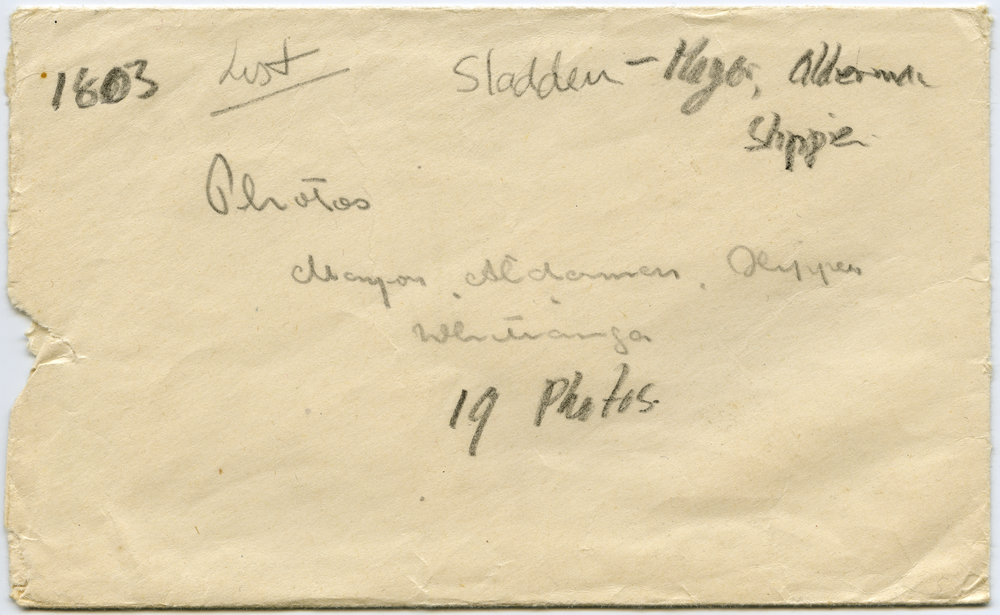 1803 List Sladden - Mayor, Alderman
Slipper
Photos
Mayor, Aldermen, Slipper
Whitianga
19 Photos.